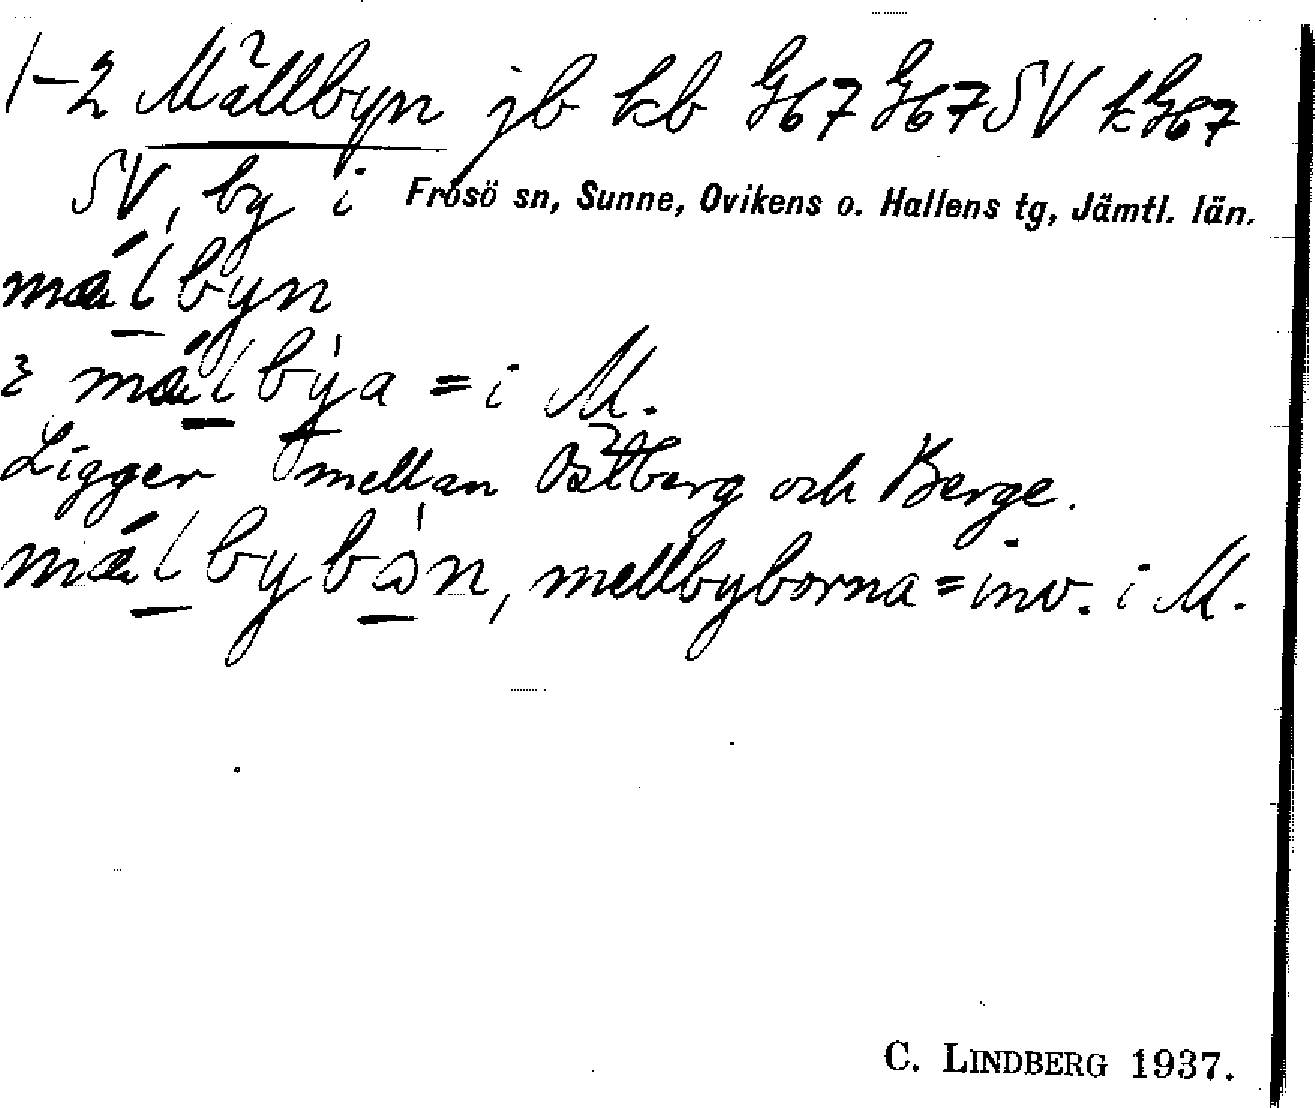 1-2 Mällbyn jb kb G67 G67SV kG67
SV, by i Frösö sn, Sunne, Ovikens o. Hallens tg, Jämtl. län.
mǽ̲lbyn
mǽ̲lbỳa = i M.
Ligger mellan Östberg och Berge.
mǽ̲lbybòn, mellbyborna = inv. i M.
C. LINDBERG 1937.